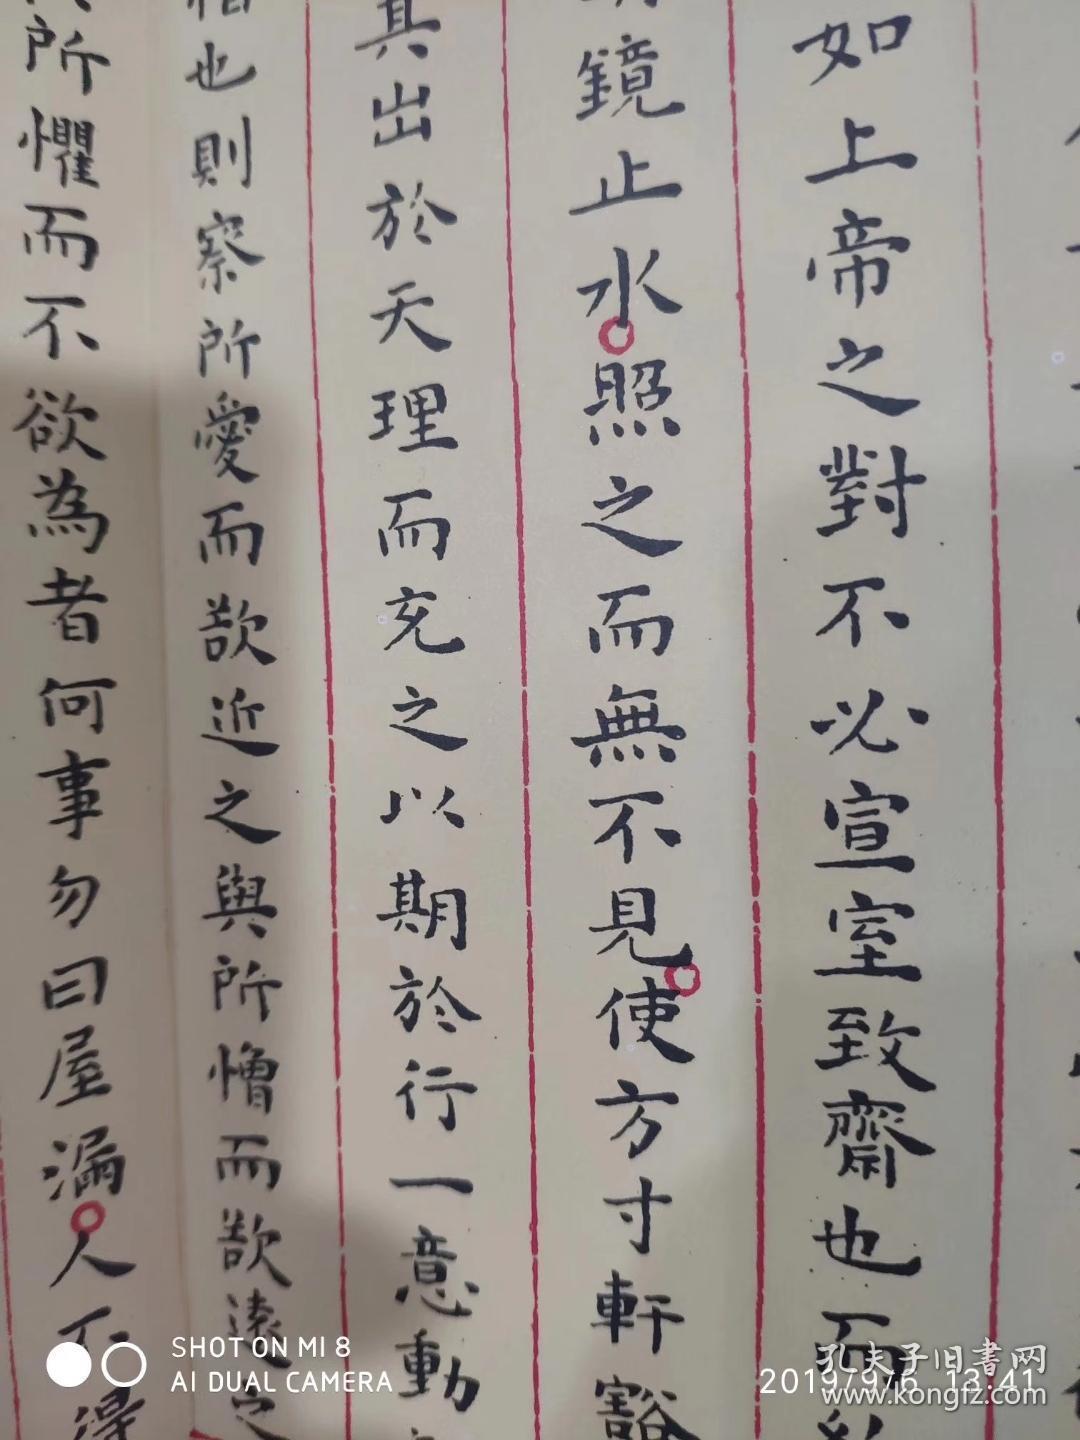 如上帝之對不必宣室致齋也而
鏡止水照之而無不見使方寸軒豁
其出於天理而充之以期於行一意動
也則察所愛而欲近之與所憎而欲遠之
所懼而不欲為者何事勿曰屋漏人不得
SHOT ON MI 8
AI DUAL CAMERA
孔夫子旧书网
2019/9/6 13:41
www.kongfz.com